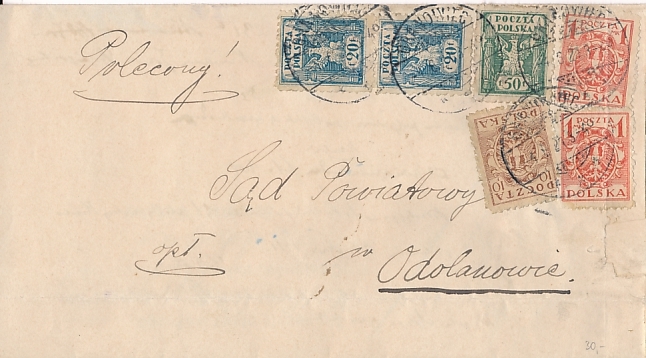 POCZTA POLSKA 20
POCZTA POLSKA 20
POCZTA POLSKA 50
1 POCZTA 1 POLSKA
1 POCZTA 1 POLSKA
POCZTA POLSKA 10 10
Polecony!
Sąd Powiatowy
opł. w
Odolanowie.
30,-